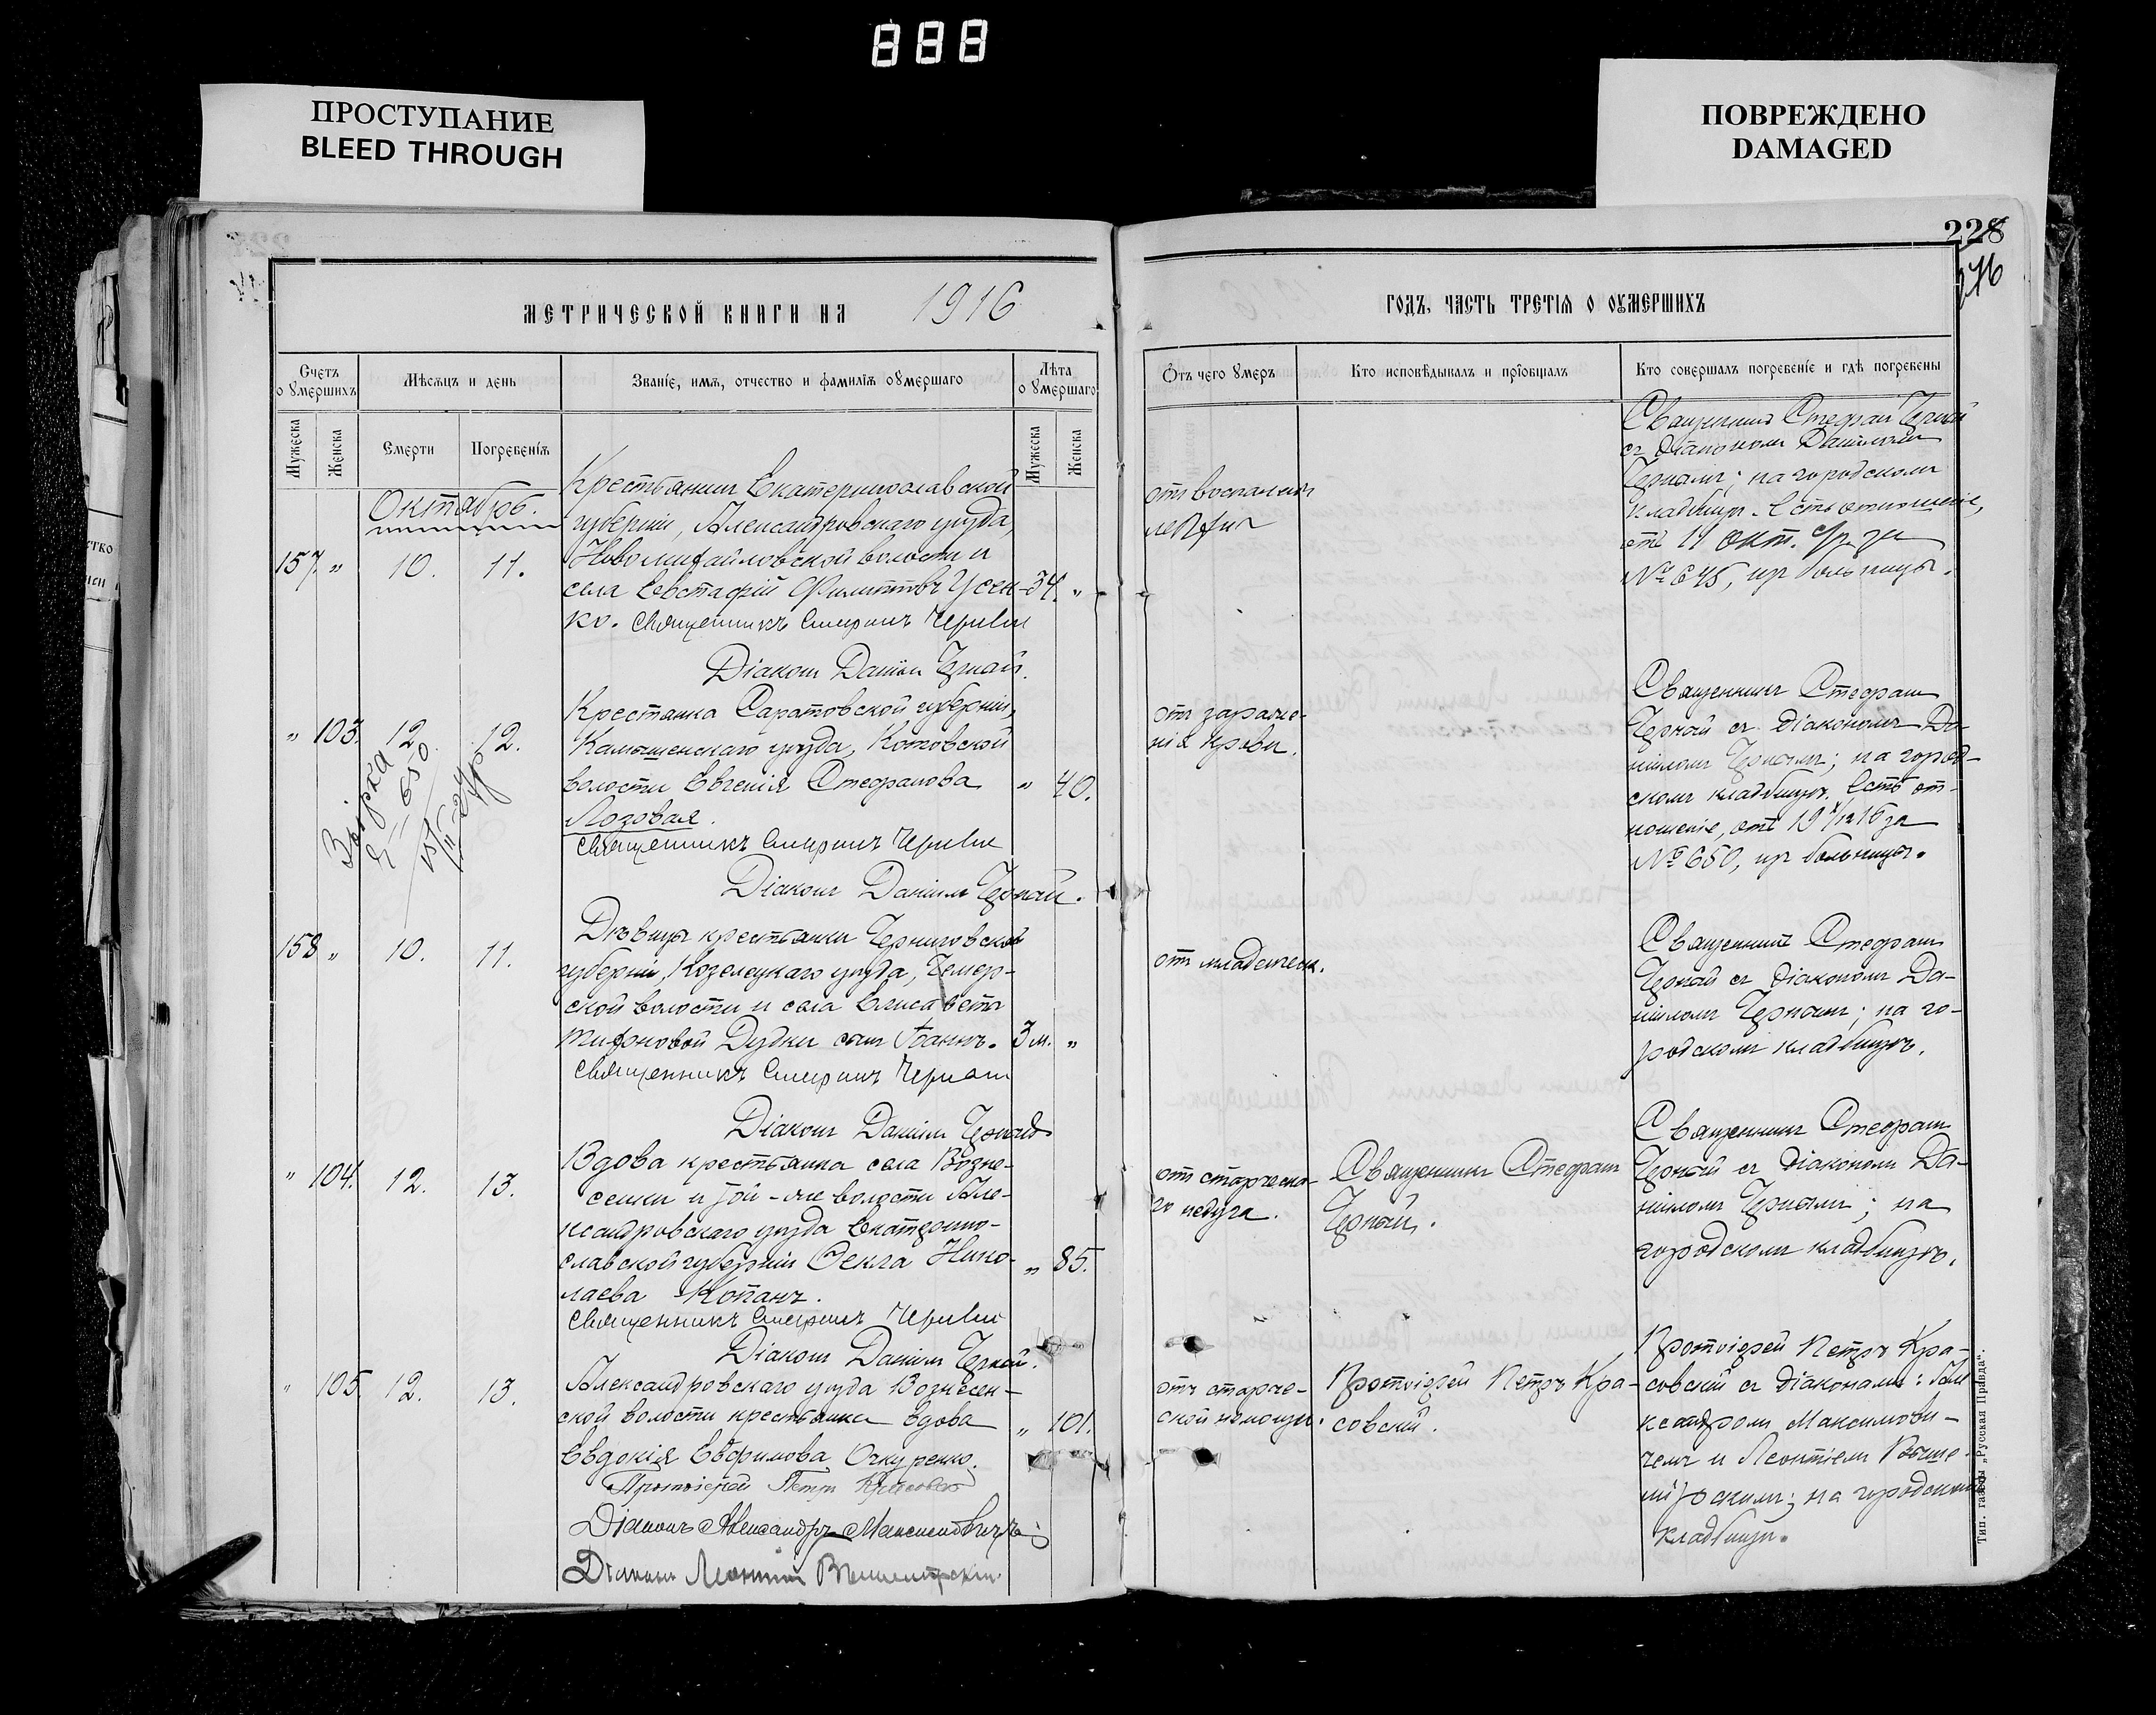 888
ПРОСТУПАНИЕ
BLEED THROUGH
ПОВРЕЖДЕНО
DAMAGED
228
МЕТРИЧЕСКОЙ КНИГИ НА 1916
ГОДЪ, ЧАСТЬ ТРЕТІЯ О ОУМЕРШИХЪ
Счетъ о умершихъ
Мѣсяцъ и день
Званіе, имя, отчество и фамилія оумершаго
Лѣта оумершаго
Мужеска
Женска
Смерти
Погребенія
Мужеска
Женска
Отъ чего умеръ
Кто исповѣдывалъ и пріобщалъ
Кто совершалъ погребеніе и гдѣ погребены
Октябрь.
157. " 10. 11.
Крестьянин Екатеринославской
губерніи, Александровскаго уѣзда,
Новомихайловской волости и
села Евстафій Филиппов Усен-
ко. Священникъ Стефанъ Черный
34. "
Діаконъ Даніил Черный.
от воспаленія
легких
Священник Стефан Черный
съ діаконом Даниилом
Черным; на городском
кладбищѣ. Есть отношеніе,
отъ 11 окт. за
№ 645, из больницы.
" 103. 12. 12.
Крестьянка Саратовской губерніи,
Камышенскаго уѣзда, Котовской
волости Евгенія Стефанова
Лозовая.
" 40.
Священникъ Стефанъ Черный
Діаконъ Даніилъ Черный.
650
от зараже-
нія крови.
Священникъ Стефан
Черный съ діаконом Да-
ніилом Черным; на город-
ском кладбищѣ. Есть от-
ношеніе, отъ 19 X/12 16 за
№ 650, из больницы.
158 " 10. 11.
Дѣвицы крестьянки Черниговской
губерніи, Козелецкаго уѣзда, Чемер-
ской волости и села Елисаветы
Тифоновой Дудки сын Іоаннъ.
3 м. "
Священникъ Стефанъ Черный
Діаконъ Даніилъ Черный
от младенческ.
Священникъ Стефан
Черный съ діаконом Да-
ніилом Черным; на го-
родском кладбищѣ.
" 104. 12. 13.
Вдова крестьянка села Возне-
сенки и той-же волости Але-
ксандровскаго уѣзда Екатерино-
славской губерніи Ѳекла Нико-
лаева Копанъ.
" 85.
Священникъ Стефанъ Черный
Діаконъ Даніилъ Черный.
от старческа-
го недуга.
Священникъ Стефан
Черный.
Священникъ Стефан
Черный съ діаконом Да-
ніилом Черным; на
городском кладбищѣ.
" 105. 12. 13.
Александровскаго уѣзда Вознесен-
ской волости крестьянка вдова
Евдокія Евфимова Очкуренко.
" 101.
Протоіерей Петръ Красовскій
Діаконъ Александръ Максимовичъ
Діаконъ Леонтій Вышемірскій.
отъ старче-
ской немощи.
Протоіерей Петръ Кра-
совскій.
Протоіерей Петръ Кра-
совскій съ діаконами: Але
ксандром Максимови-
чемъ и Леонтіем Выше-
мірскимъ; на городском
кладбищѣ.
Тип. газеты „Русская Правда“.